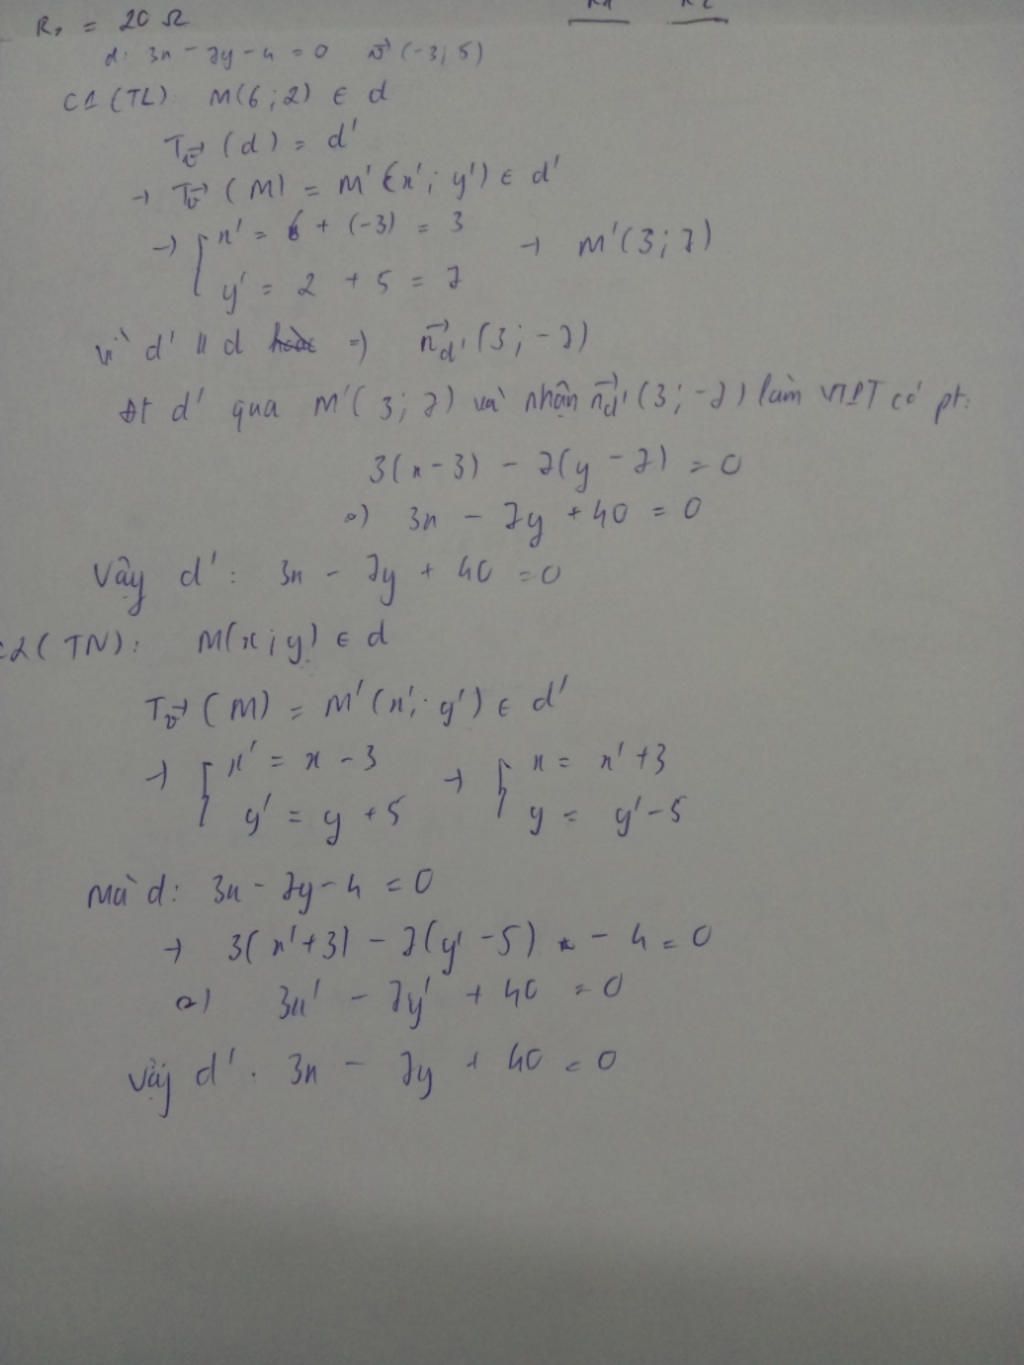 R₂ = 20 Ω
d: 3x - 7y - 4 = 0 v⃗ (-3; 5)
C1 (TL) M(6; 2) ∈ d
T_v⃗ (d) = d'
→ T_v⃗ (M) = M' (x'; y') ∈ d'
→ { x' = 6 + (-3) = 3
y' = 2 + 5 = 7 → M'(3; 7)
Vì d' // d => n⃗_d' (3; -7)
Đt d' qua M'(3; 7) và nhận n⃗_d' (3; -7) làm VTPT có pt:
3(x - 3) - 7(y - 7) = 0
<=> 3x - 7y + 40 = 0
Vậy d': 3x - 7y + 40 = 0
C2 (TN): M(x; y) ∈ d
T_v⃗ (M) = M'(x'; y') ∈ d'
→ { x' = x - 3 → { x = x' + 3
y' = y + 5 y = y' - 5
Mà d: 3x - 7y - 4 = 0
→ 3(x' + 3) - 7(y' - 5) - 4 = 0
<=> 3x' - 7y' + 40 = 0
Vậy d': 3x - 7y + 40 = 0